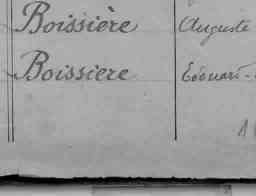 Boissière Auguste
Boissiere Edouard-
1